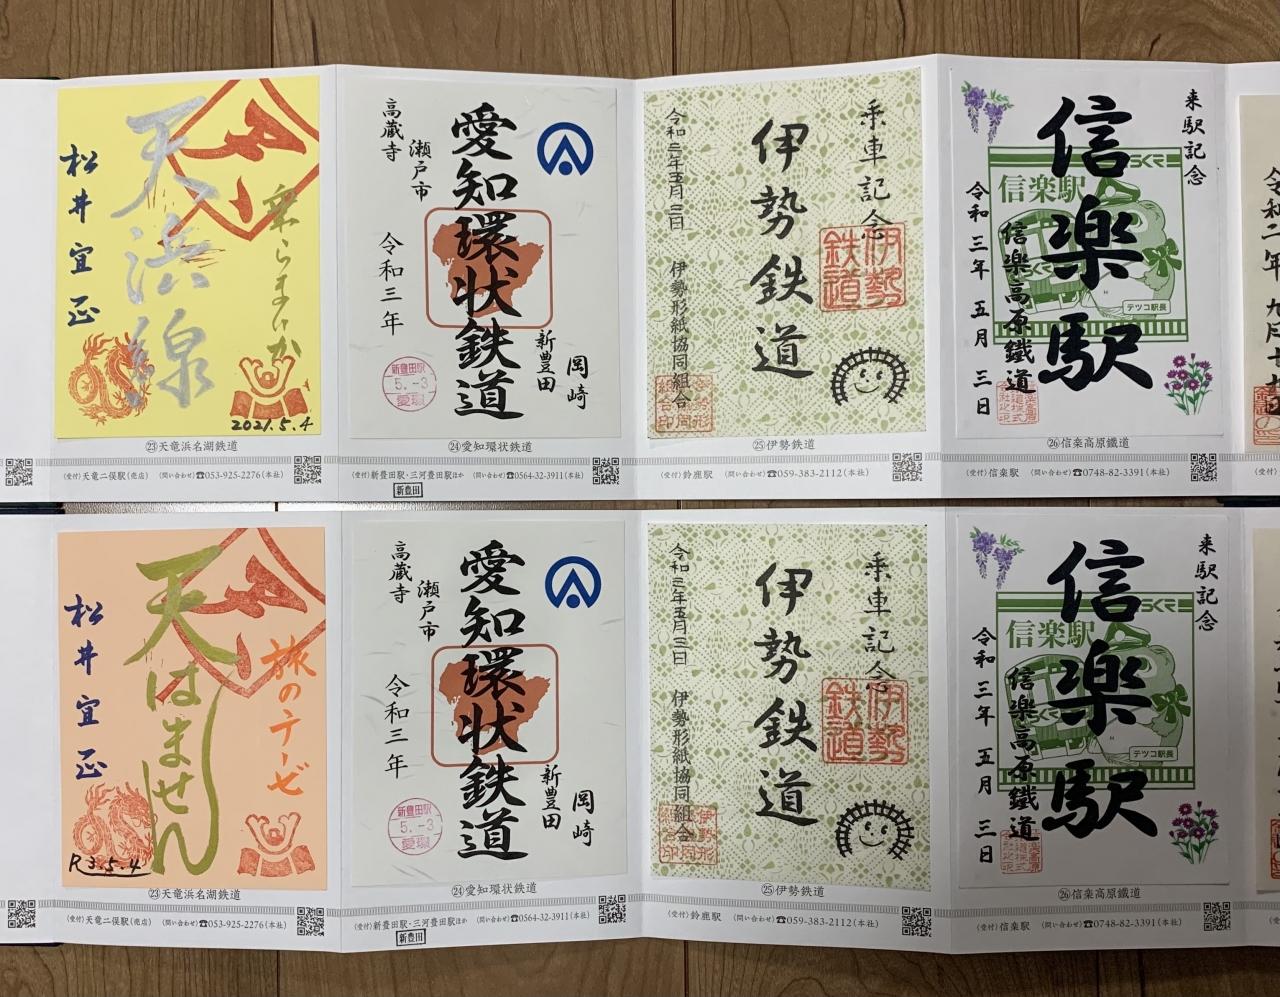 天浜線
乗らまいか
松井宜正
2021.5.4
㉓天竜浜名湖鉄道
〈受付〉天竜二俣駅(売店) 〈問い合わせ〉☎053-925-2276(本社)
愛知環状鉄道
高蔵寺
瀬戸市
令和三年
新豊田
岡崎
新豊田駅
5.-3
愛環
㉔愛知環状鉄道
〈受付〉新豊田駅・三河豊田駅ほか 〈問い合わせ〉☎0564-32-3911(本社)
新豊田
乗車記念
伊勢鉄道
伊勢鉄道
令和三年五月三日 伊勢形紙協同組合
㉕伊勢鉄道
〈受付〉鈴鹿駅 〈問い合わせ〉☎059-383-2112(本社)
来駅記念
信楽駅
SKR
信楽駅
テツコ駅長
信楽高原鐵道
令和三年 五月 三日
㉖信楽高原鐵道
〈受付〉信楽駅 〈問い合わせ〉☎0748-82-3391(本社)
令和二年 九月十
旅のテーゼ
天はません
松井宜正
R3.5.4
㉓天竜浜名湖鉄道
〈受付〉天竜二俣駅(売店) 〈問い合わせ〉☎053-925-2276(本社)
愛知環状鉄道
高蔵寺
瀬戸市
令和三年
新豊田
岡崎
新豊田駅
5.-3
愛環
㉔愛知環状鉄道
〈受付〉新豊田駅・三河豊田駅ほか 〈問い合わせ〉☎0564-32-3911(本社)
新豊田
乗車記念
伊勢鉄道
伊勢鉄道
令和三年五月三日 伊勢形紙協同組合
㉕伊勢鉄道
〈受付〉鈴鹿駅 〈問い合わせ〉☎059-383-2112(本社)
来駅記念
信楽駅
SKR
信楽駅
テツコ駅長
信楽高原鐵道
令和三年 五月 三日
㉖信楽高原鐵道
〈受付〉信楽駅 〈問い合わせ〉☎0748-82-3391(本社)